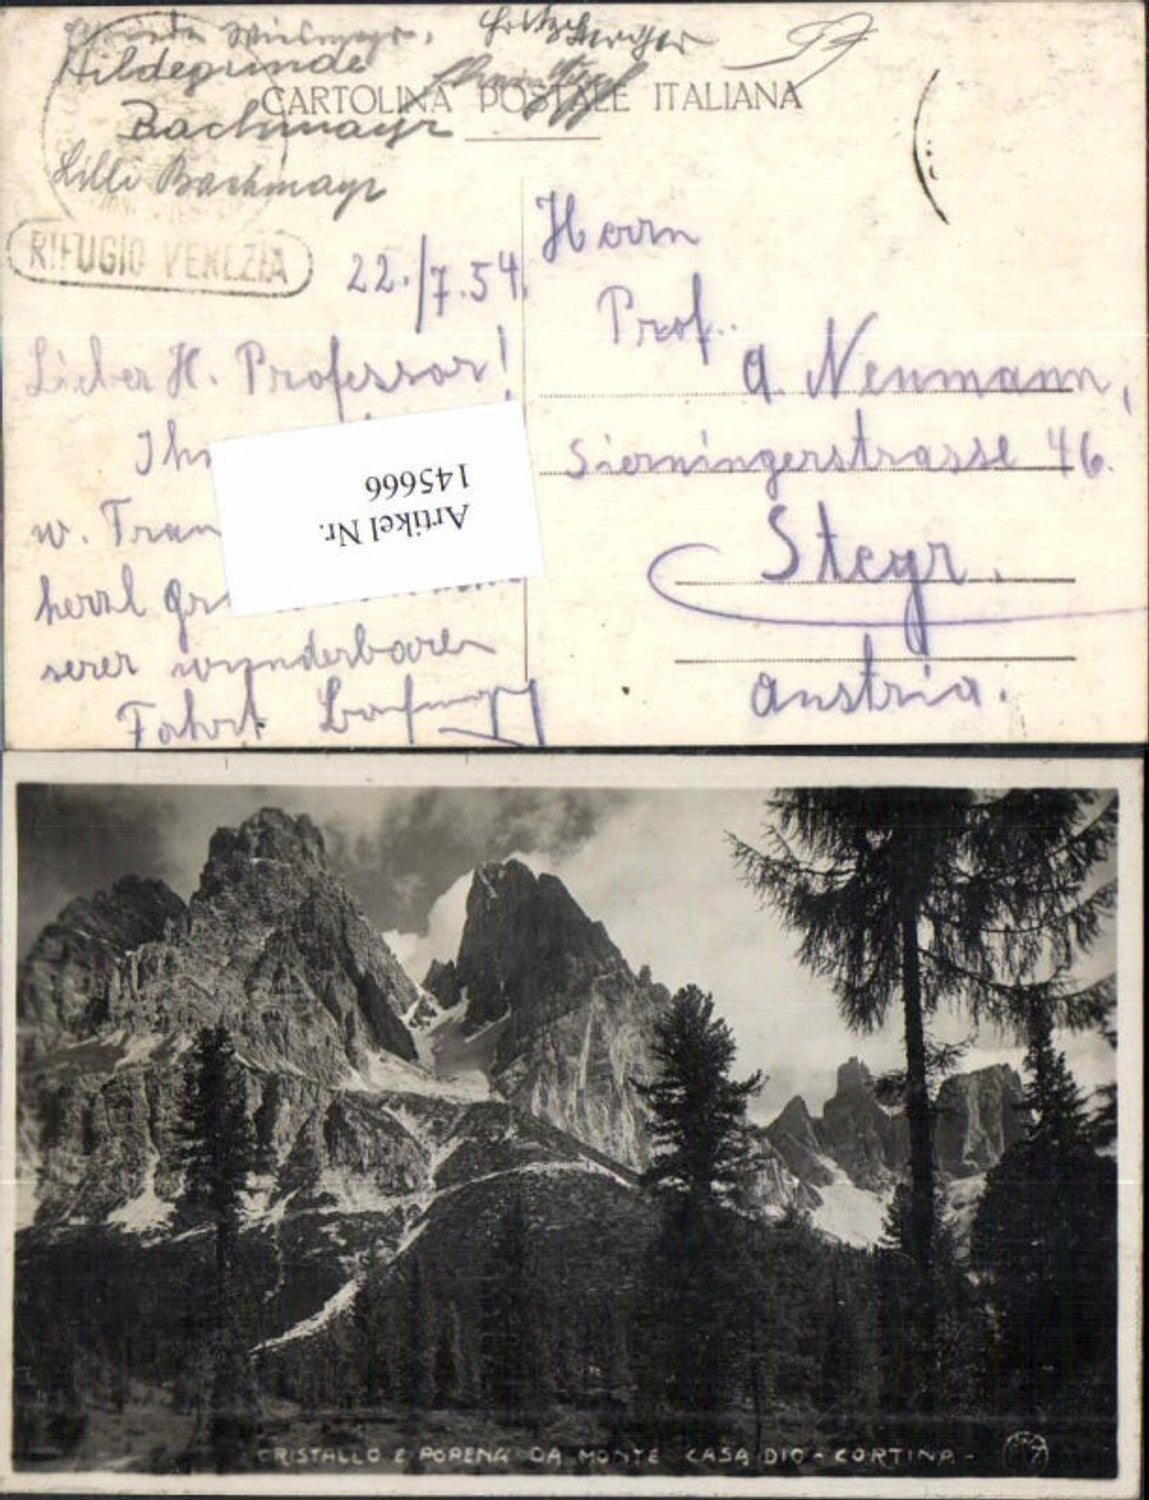 Wiesmayr, Fritz Berger
Hildegunde
CARTOLINA POSTALE ITALIANA
Bachmayr
Lilli Bachmayr
RIFUGIO VENEZIA
22./7.54.
Herrn
Prof.
A. Neumann,
Sierningerstrasse 46.
Steyr.
Austria.
Lieber H. Professor!
Ihn
w. Frau
herzl Gr
serer wunderbaren
Fahrt
Artikel Nr.
145666
CRISTALLO E POPENA DA MONTE CASA DIO - CORTINA -